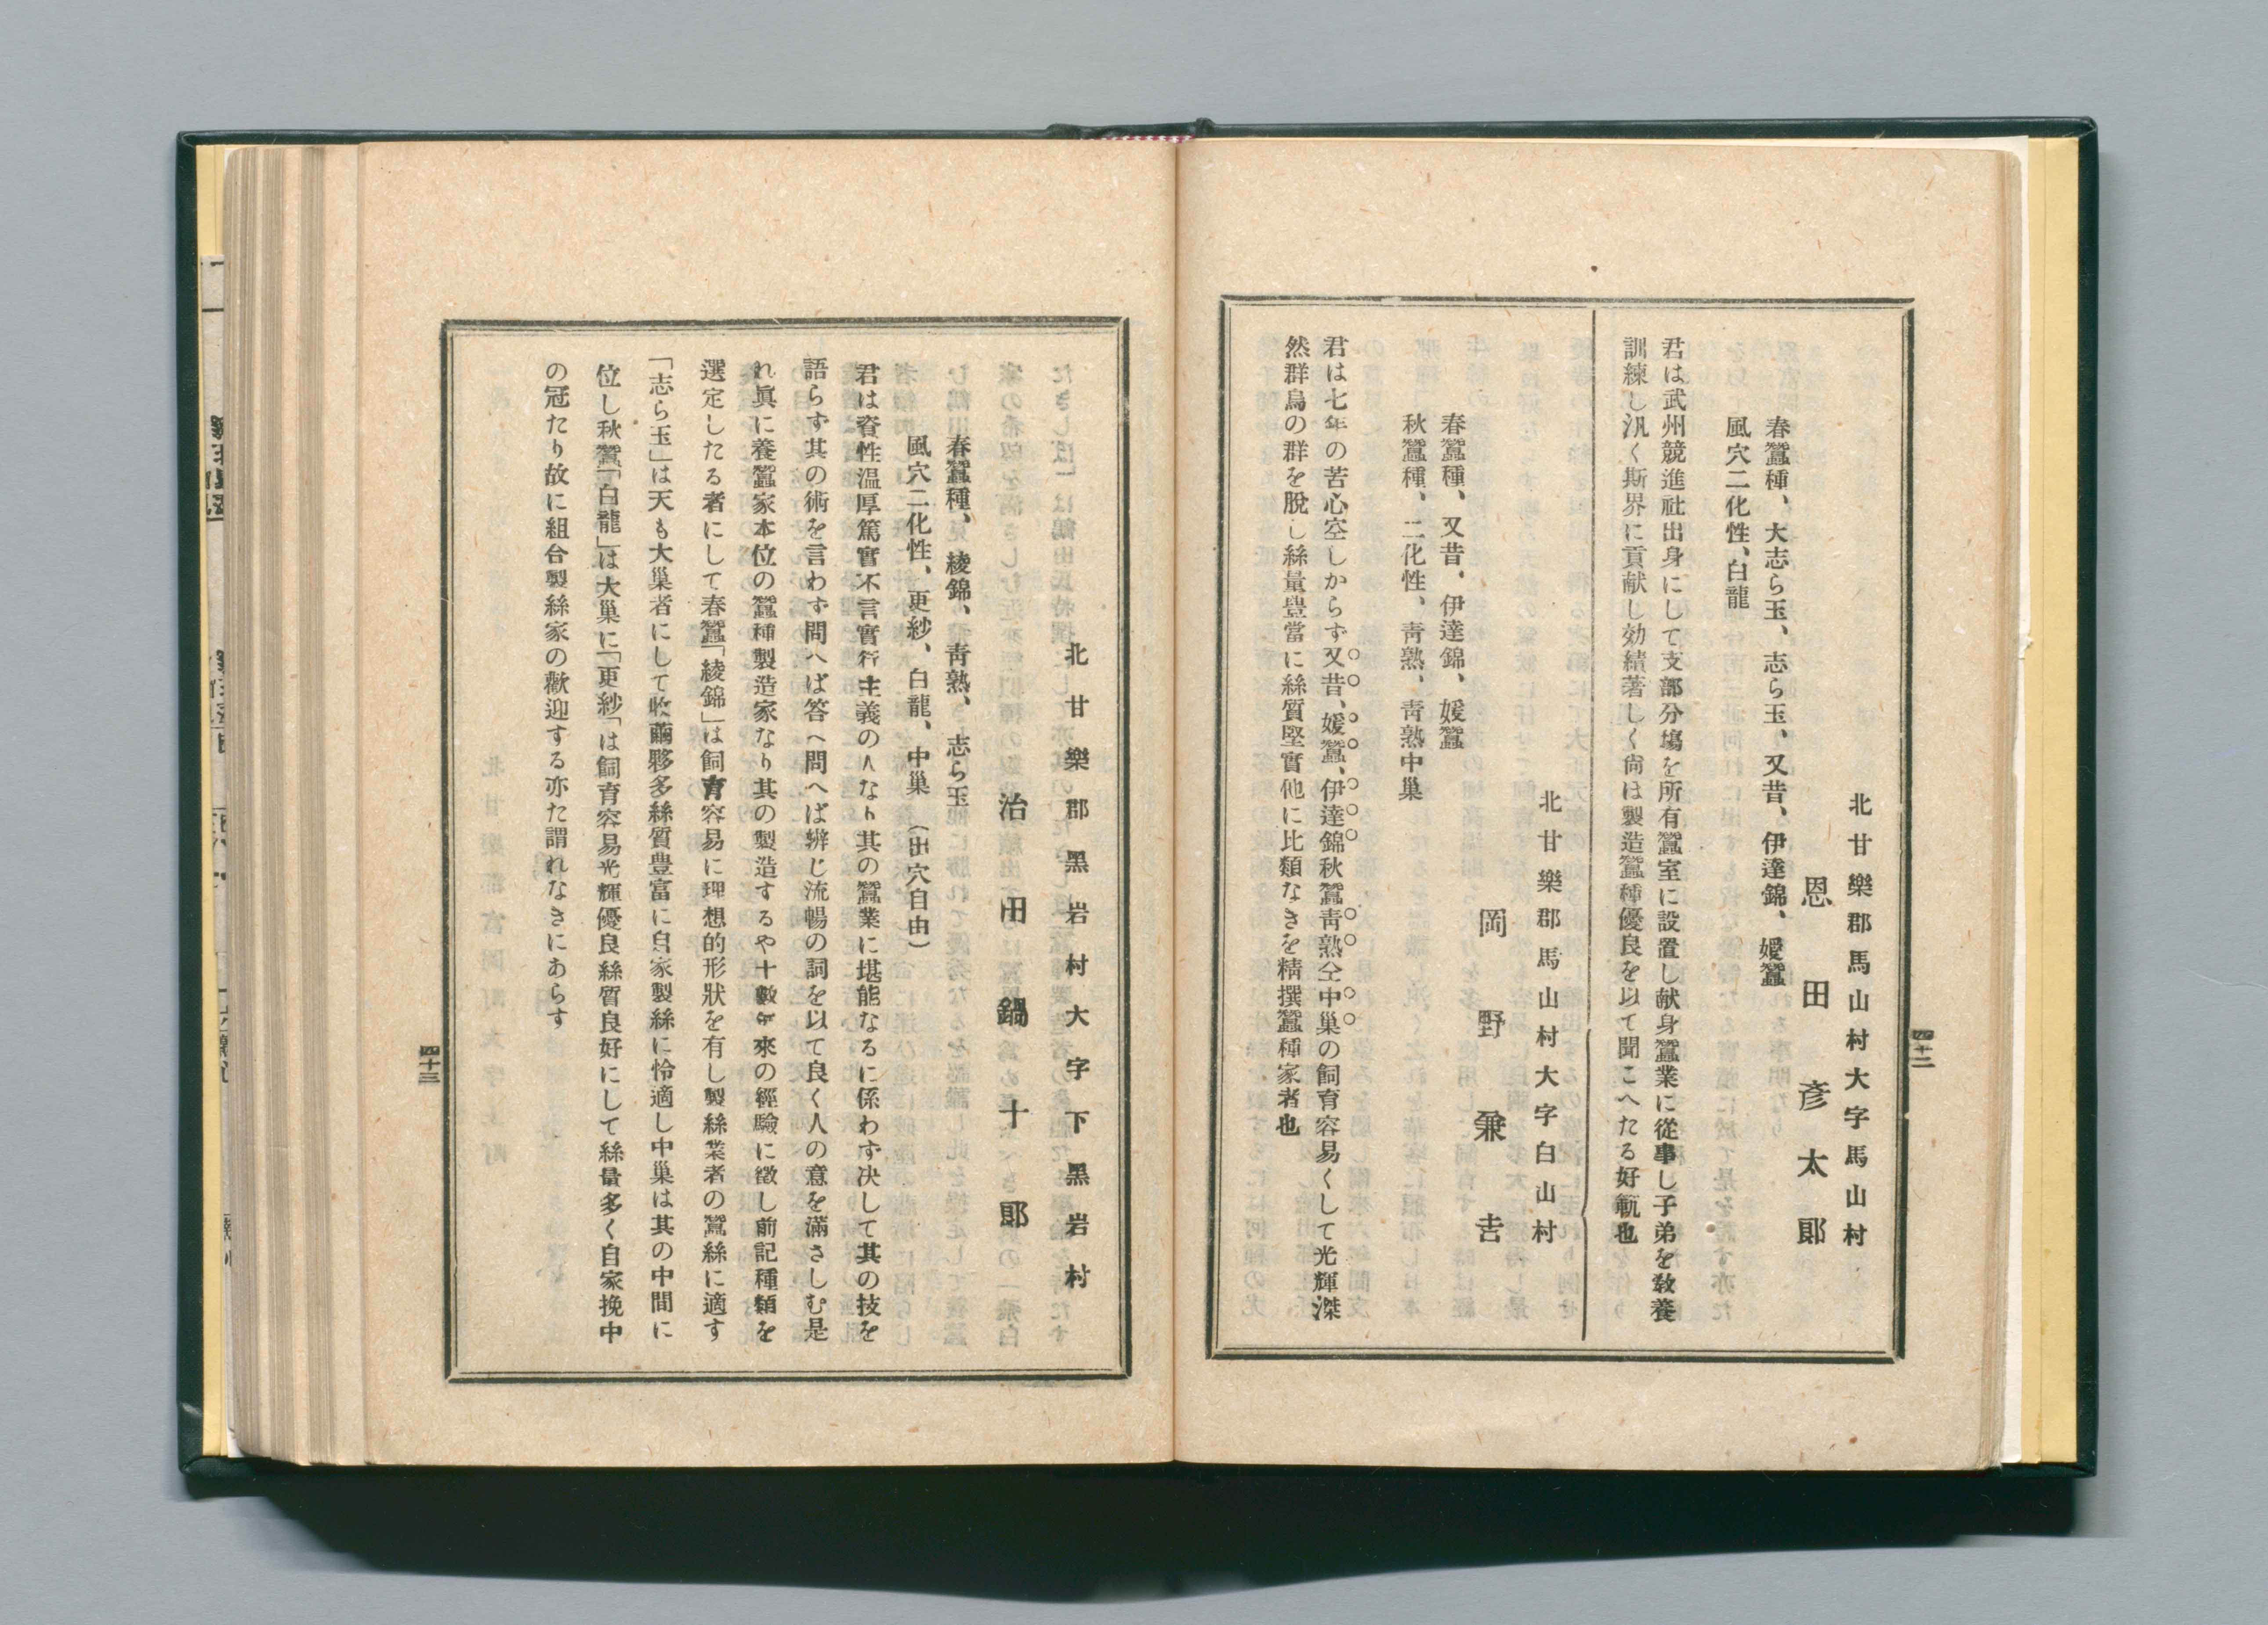 北甘樂郡馬山村大字馬山村
恩田彥太郞
春蠶種、大志ら玉、志ら玉、又昔、伊達錦、嫒蠶
風穴二化性、白龍
君は武州競進社出身にして支部分塲を所有蠶室に設置し献身蠶業に從事し子弟を敎養
訓練し汎く斯界に貢献し効績著しく尙は製造蠶種優良を以て聞こへたる好範也
北甘樂郡馬山村大字白山村
岡野兼吉
春蠶種、又昔、伊達錦、嫒蠶
秋蠶種、二化性、靑熟、靑熟中巢
君は七年の苦心空しからず又昔、嫒蠶、伊達錦秋蠶靑熟仝中巢の飼育容易くして光輝潔
然群鳥の群を脫し絲量豊當に絲質堅實他に比類なきを精撰蠶種家者也
四十二
北甘樂郡黑岩村大字下黑岩村
治田鍋十郞
春蠶種、綾錦、靑熟、志ら玉
風穴二化性、更紗、白龍、中巢（出穴自由）
君は資性温厚篤實不言實行主義の人なり其の蠶業に堪能なるに係わず决して其の技を
語らず其の術を言わず問へば答へ問へば辨じ流暢の詞を以て良く人の意を滿さしむ是
れ眞に養蠶家本位の蠶種製造家なり其の製造するや十數年來の經驗に徵し前記種類を
選定したる者にして春蠶「綾錦」は飼育容易に理想的形狀を有し製絲業者の蠶絲に適す
「志ら玉」は天も大巢者にして收繭夥多絲質豊富に自家製絲に怜適し中巢は其の中間に
位し秋蠶「白龍」は大巢に「更紗「は飼育容易光輝優良絲質良好にして絲量多く自家挽中
の冠たり故に組合製絲家の歡迎する亦た謂れなきにあらす
四十三